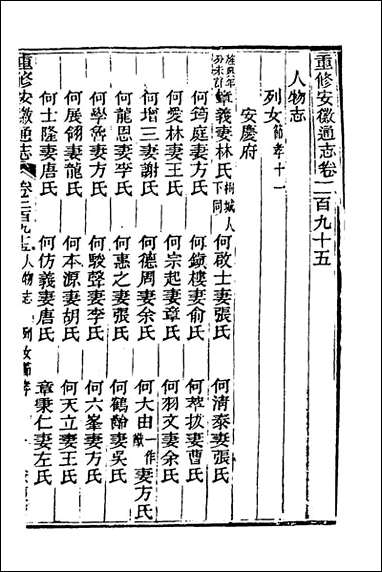 重修安徽通志卷二百九十五
人物志
列女節孝十一
安慶府
章義妻林氏桐城人下同
何筠庭妻方氏 何啟士妻張氏 何清泰妻張氏
何愛林妻王氏 何鎮樓妻俞氏 何萃拔妻曹氏
何增三妻謝氏 何宗起妻章氏 何羽文妻余氏
何龍恩妻李氏 何德周妻余氏 何大由一作妻方氏
何學魯妻方氏 何惠之妻張氏 何鶴齡妻吳氏
何展翎妻龍氏 何駿聲妻李氏 何六峯妻方氏
何士隆妻唐氏 何本源妻胡氏 何天立妻王氏
何仿義妻唐氏 章秉仁妻左氏
重修安徽通志 卷二百九十五 人物志 列女節孝 一